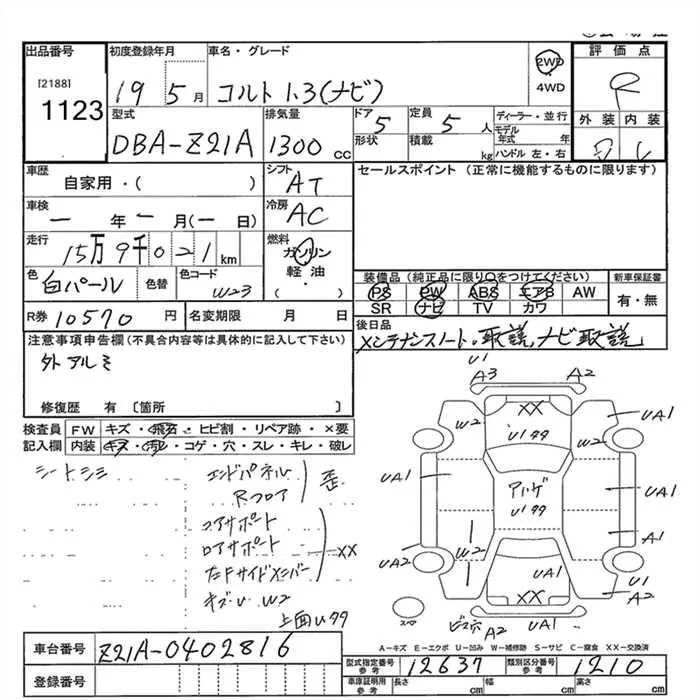 出品番号 初度登録年月 車名・グレード 評価点
[2188]
1123
19 5月 コルト 1.3(ナビ) 2WD 4WD R
型式 排気量 ドア 定員 ディーラー・並行 外装 内装
DBA-Z21A 1300cc 5 5人 モデル年式 年
形状 積載 kg ハンドル 左・右
車歴 シフト セールスポイント (正常に機能するものに限ります)
自家用・( ) AT
車検 冷房
一年一月(一日) AC
走行 燃料
15万9千021km ガソリン
軽油・
( )
色 色替 色コード
白パール W23
装備品(純正品に限り○をつけてください) 新車保証書
PS PW ABS エアB AW 有・無
SR ナビ TV カワ
R券 10570円 名変期限 月 日
後日品
メンテナンスノート・取説,ナビ取説
注意事項申告欄(不具合内容等は具体的に記入して下さい)
外アルミ
修復歴 有〔箇所 〕
検査員 FW キズ・飛石・ヒビ割・リペア跡・×要
記入欄 内装 キズ・汚れ・コゲ・穴・スレ・キレ・破レ
シートシミ
エンドパネル
Rフロア
歪
コアサポート
ロアサポート
XX
W2
上面U99
U1
A3 A2
XX
W2 U199 W2 UA1
UA1 アハゲ UA1
U199
A1
UA2 W2 UA1 U1
XX UA1
スペ ビス穴 A2 UA1
A-キズ E-エクボ U-凹み W-補修跡 S-サビ C-腐食 XX-交換済
車台番号 Z21A-0402816
型式指定番号 参考 12637 類別区分番号 参考 1210
登録番号 車庫証明用 参考 長さ cm 幅 cm 高さ cm